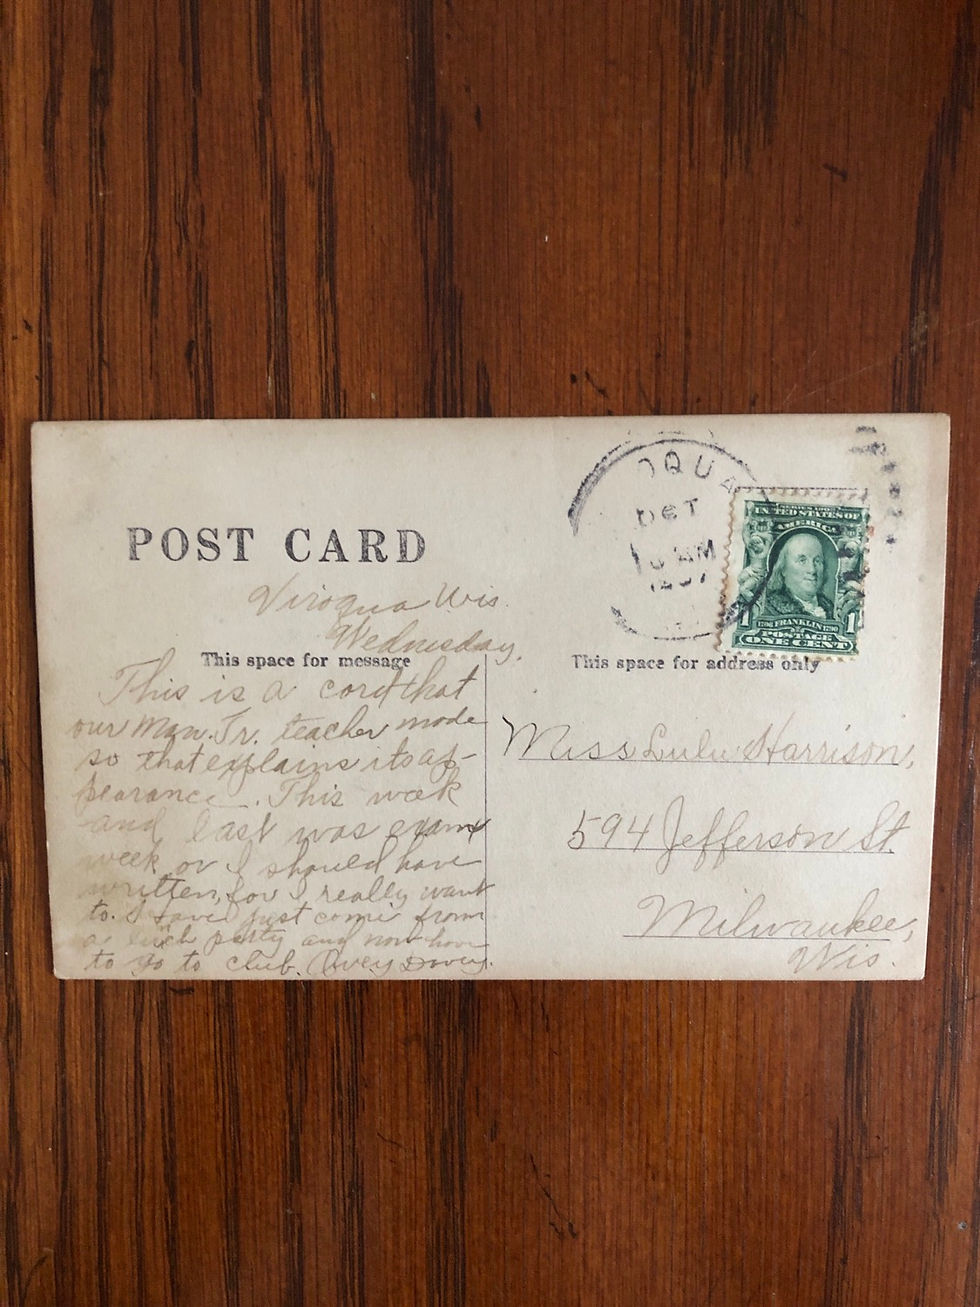 POST CARD
Viroqua Wis.
Wednesday.
This space for message
This is a card that
our Man. Tr. teacher made
so that explains its ap-
pearance. This week
and last was exam
week or I should have
written, for I really want
to. I have just come from
a party and now have
to go to club.
OQUA
OCT
M
SERIES 1902
UNITED STATES OF
AMERICA
1 1706 FRANKLIN 1790 1
POSTAGE
ONE CENT
This space for address only
Miss Lulu Harrison,
594 Jefferson St.
Milwaukee,
Wis.